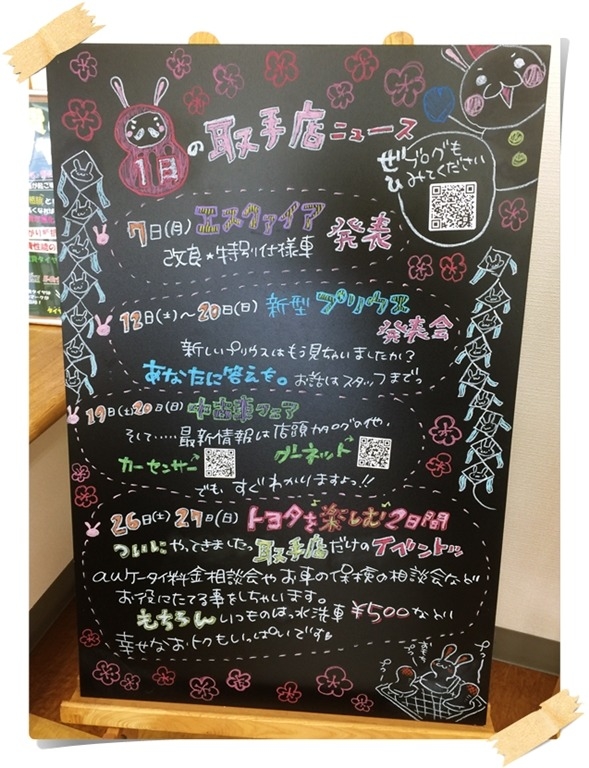 1月の取手店ニュース
ぜひブログも
みてください
7日(月) エスクァイア 発表
改良★特別仕様車
12日(土)～20日(日) 新型プリウス
発表会
新しいプリウスはもう見ちゃいましたか?
あなたに答えを。お話はスタッフまでっ
19日(土)20日(日) 中古車フェア
そして……最新情報は店頭カタログの他、
カーセンサー グーネット
でも、すぐわかりますよっ!!
26日(土) 27日(日) トヨタを楽しむ2日間
ついにやってきましたっ取手店だけのイベントッ
auケータイ料金相談会やお車の保検の相談会など
お役にたてる事をしちゃいます。
もちろんいつものは、水洗車¥500などい
幸せなおトクもいっぱいです